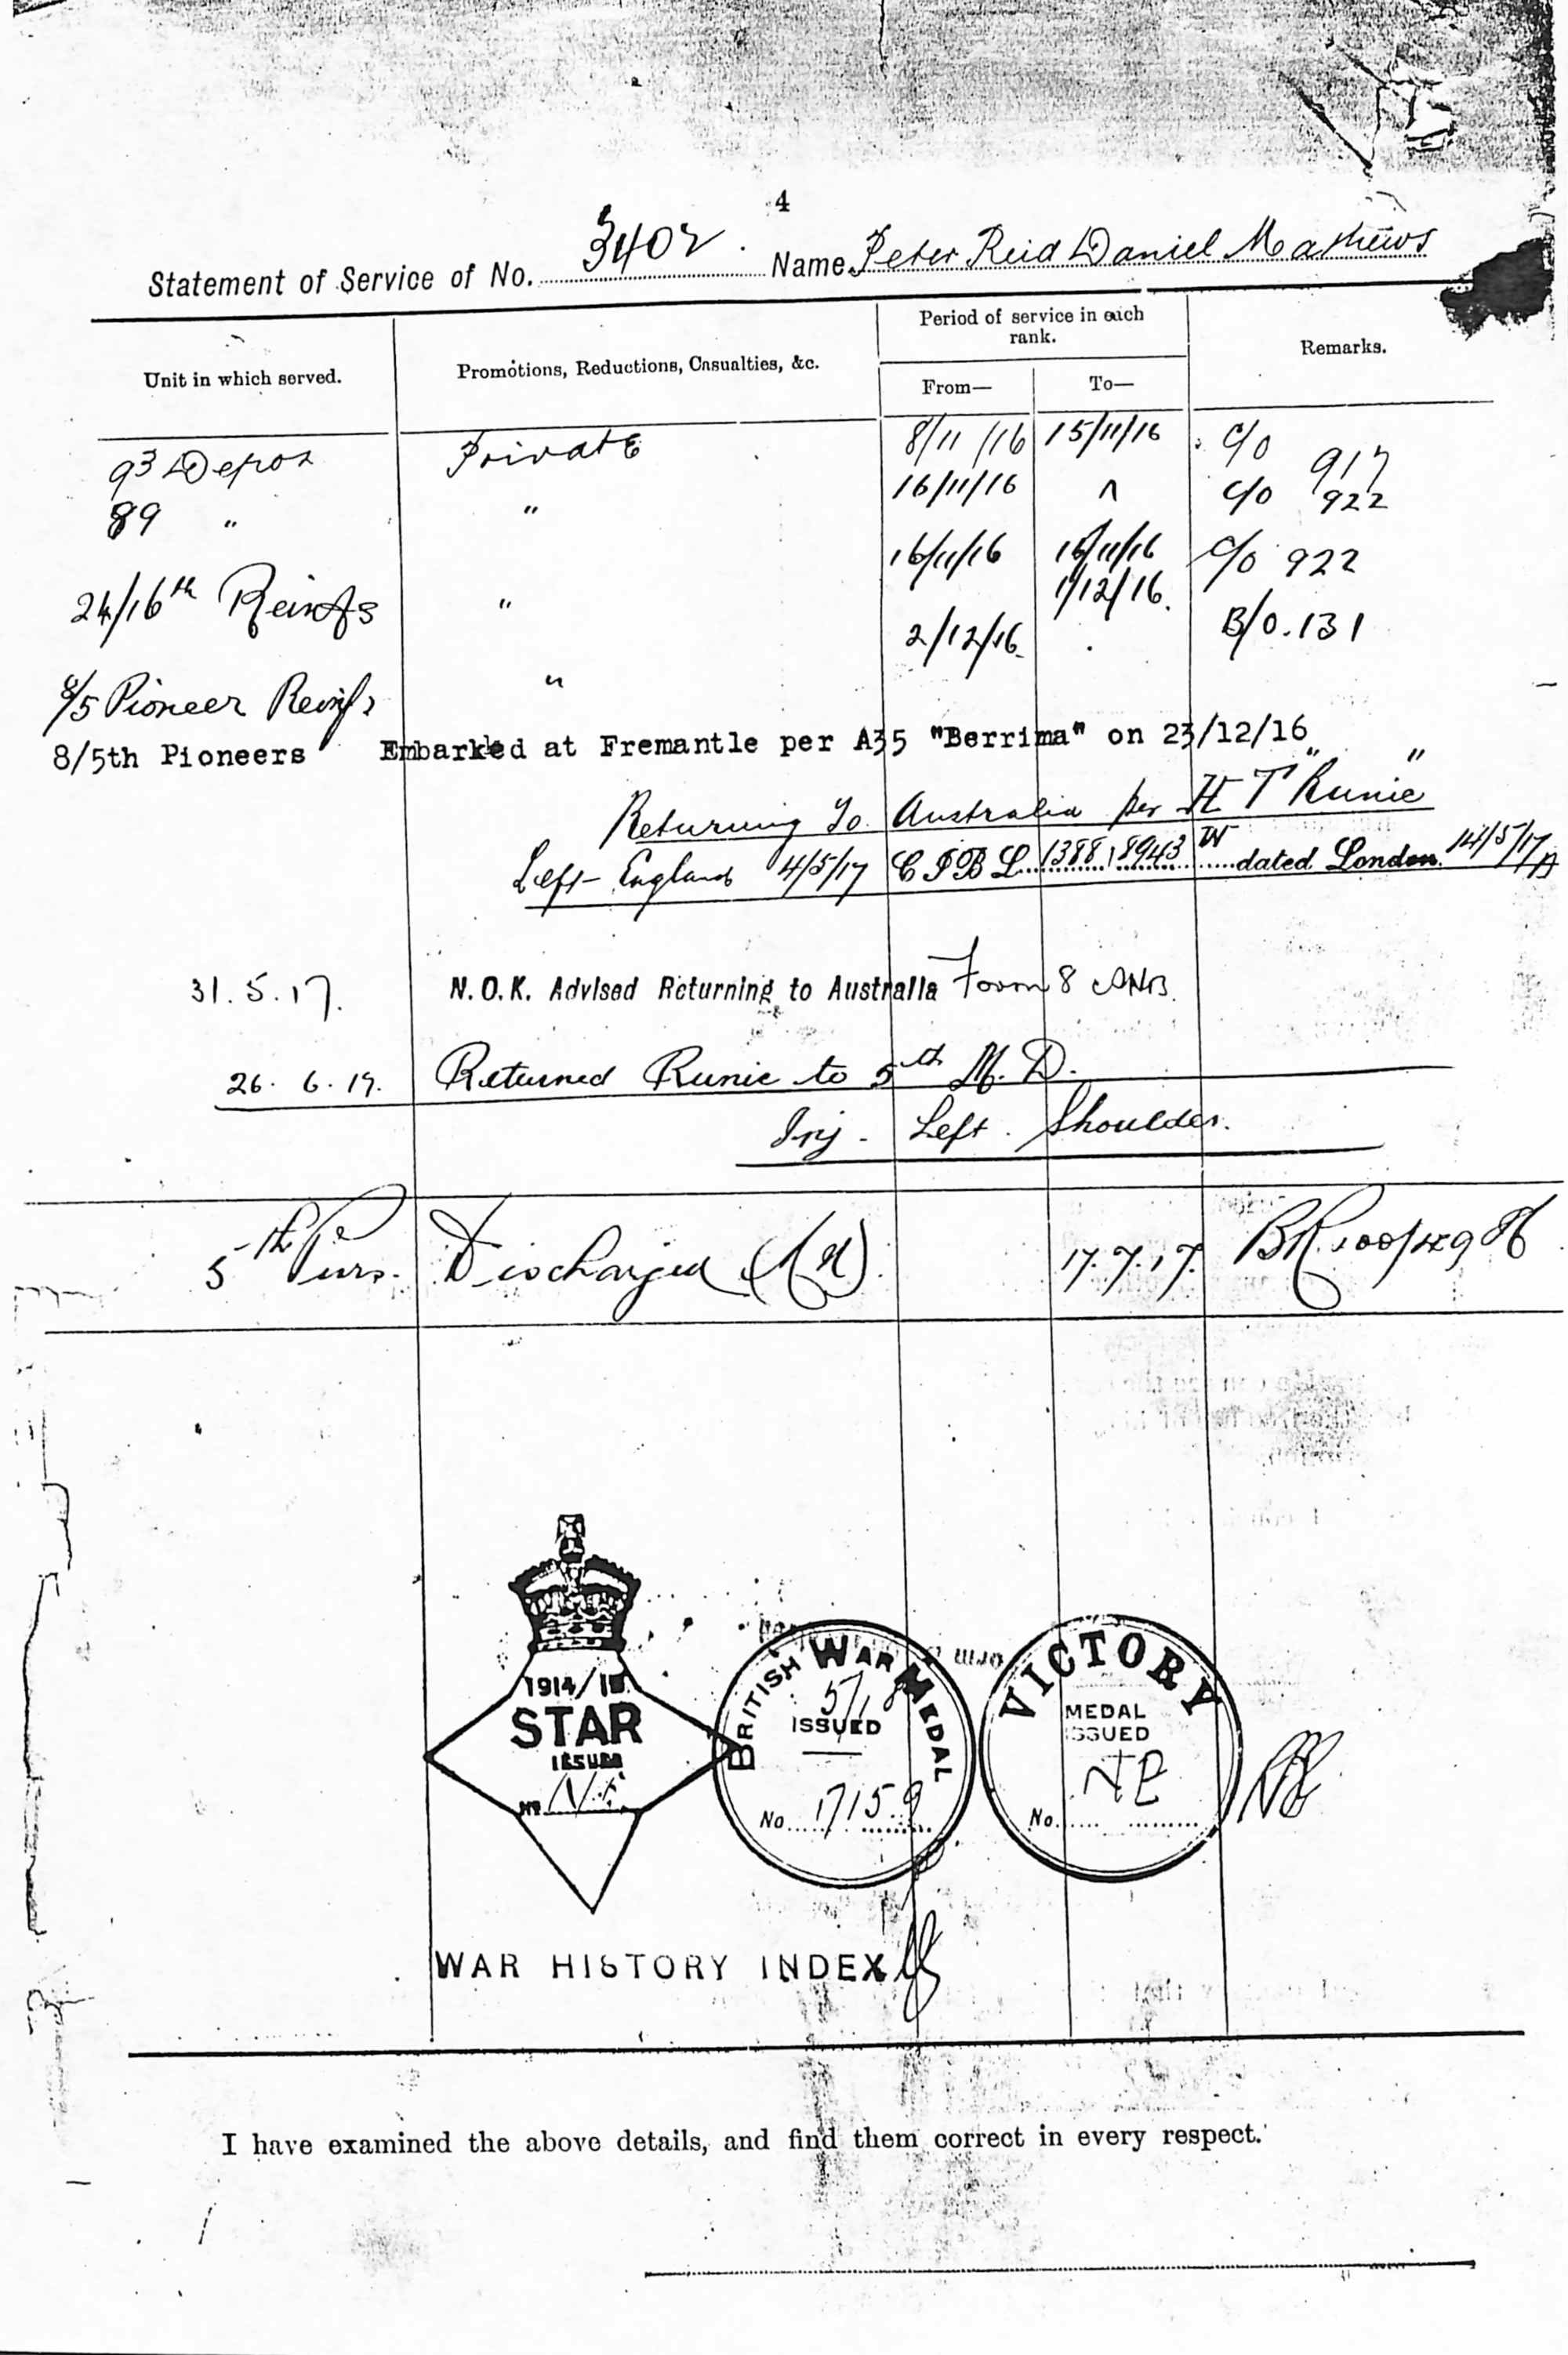 4
Statement of Service of No. 3402. Name Peter Reid Daniel Mathews
Unit in which served. Promotions, Reductions, Casualties, &c. Period of service in each rank. From— To— Remarks.
93 Depot Private 8/11/16 15/11/16 C/O 917
89 " " 16/11/16 C/O 922
24/16th Reinfs " 16/11/16 16/11/16 C/O 922
1/12/16.
8/5 Pioneer Reinfs " 2/12/16. B/O.131
8/5th Pioneers Embarked at Fremantle per A35 "Berrima" on 23/12/16
Returning to Australia per H T "Runic"
Left England 4/5/17 C I B L 1388 18943 W dated London 14/5/17
31.5.17. N.O.K. Advised Returning to Australia Form 8
26.6.17. Returned Runic to 5th M.D.
Inj. Left. Shoulder.
5th Discharged 17.7.17.
1914/15
STAR
ISSUED
No
BRITISH WAR MEDAL
ISSUED
No. 17159
VICTORY
MEDAL
ISSUED
No.
WAR HISTORY INDEX
I have examined the above details, and find them correct in every respect.